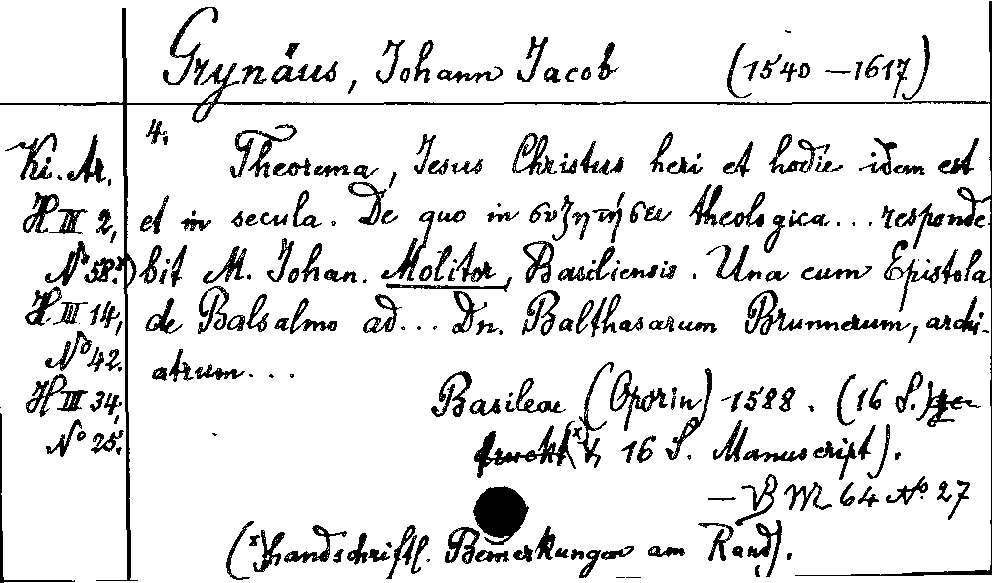 Grynäus, Johann Jacob (1540 – 1617)
4.
Ki. Ar. Theorema, Jesus Christus heri et hodie idem est
H III 2, et in secula. De quo in συζητήσει theologica... responde-
No 58.x) bit M. Johan. Molitor, Basiliensis. Una cum Epistola
H III 14, de Balsalmo ad... Dn. Balthasarum Brunnerum, archi-
No 42. atrum...
H III 34, Basileae (Oporin) 1588. (16 S.) ge-
No 25. druckt (x) & 16 S. Manuscript).
— VB M 64 No 27
(x) handschriftl. Bemerkungen am Rand).